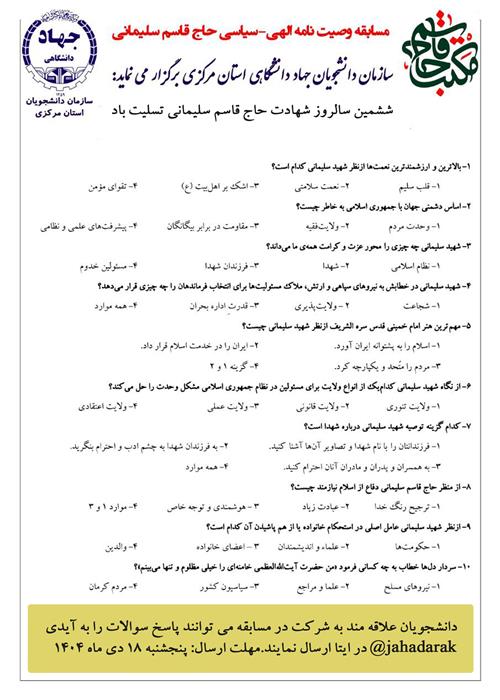 مسابقه وصیت نامه الهی-سیاسی حاج قاسم سلیمانی
سازمان دانشجویان جهاد دانشگاهی استان مرکزی برگزار می نماید:
ششمین سالروز شهادت حاج قاسم سلیمانی تسلیت باد
مکتب حاج قاسم
جهاد
دانشگاهی
۱۳۵۹
سازمان دانشجویان
استان مرکزی
۱- بالاترین و ارزشمندترین نعمت‌ها ازنظر شهید سلیمانی کدام است؟
۱- قلب سلیم ۲- نعمت سلامتی ۳- اشک بر اهل‌بیت (ع) ۴- تقوای مؤمن
۲- اساس دشمنی جهان با جمهوری اسلامی به خاطر چیست؟
۱- وحدت مردم ۲- ولایت‌فقیه ۳- مقاومت در برابر بیگانگان ۴- پیشرفت‌های علمی و نظامی
۳- شهید سلیمانی چه چیزی را محور عزت و کرامت همه‌ی ما می‌داند؟
۱- نظام اسلامی ۲- شهدا ۳- فرزندان شهدا ۴- مسئولین خدوم
۴- شهید سلیمانی در خطابش به نیروهای سپاهی و ارتش، ملاک مسئولیت‌ها برای انتخاب فرماندهان را چه چیزی قرار می‌دهد؟
۱- شجاعت ۲- ولایت‌پذیری ۳- قدرت اداره بحران ۴- همه موارد
۵- مهم‌ترین هنر امام خمینی قدس سره الشریف ازنظر شهید سلیمانی چیست؟
۱- اسلام را به پشتوانه ایران آورد. ۲- ایران را در خدمت اسلام قرار داد.
۳- مردم را متّحد و یکپارچه کرد. ۴- گزینه ۱ و ۲
۶- از نگاه شهید سلیمانی کدام‌یک از انواع ولایت برای مسئولین در نظام جمهوری اسلامی مشکل وحدت را حل می‌کند؟
۱- ولایت تنوری ۲- ولایت قانونی ۳- ولایت عملی ۴- ولایت اعتقادی
۷- کدام گزینه توصیه شهید سلیمانی درباره شهدا است؟
۱- فرزندانتان را با نام شهدا و تصاویر آن‌ها آشنا کنید. ۲- به فرزندان شهدا به چشم ادب و احترام بنگرید.
۳- به همسران و پدران و مادران آنان احترام کنید. ۴- همه موارد
۸- از منظر حاج قاسم سلیمانی دفاع از اسلام نیازمند چیست؟
۱- ترجیح رنگ خدا ۲- عبادت زیاد ۳- هوشمندی و توجه خاص ۴- موارد ۱ و ۳
۹- ازنظر شهید سلیمانی عامل اصلی در استحکام خانواده یا از هم پاشیدن آن کدام است؟
۱- حکومت‌ها ۲- علماء و اندیشمندان ۳- اعضای خانواده ۴- والدین
۱۰- سردار دل‌ها خطاب به چه کسانی فرمود «من حضرت آیت‌الله‌العظمی خامنه‌ای را خیلی مظلوم و تنها می‌بینم»؟
۱- نیروهای مسلح ۲- علما و مراجع ۳- سیاسیون کشور ۴- مردم کرمان
دانشجویان علاقه مند به شرکت در مسابقه می توانند پاسخ سوالات را به آیدی
@jahadarak در ایتا ارسال نمایند.مهلت ارسال: پنجشنبه ۱۸ دی ماه ۱۴۰۴